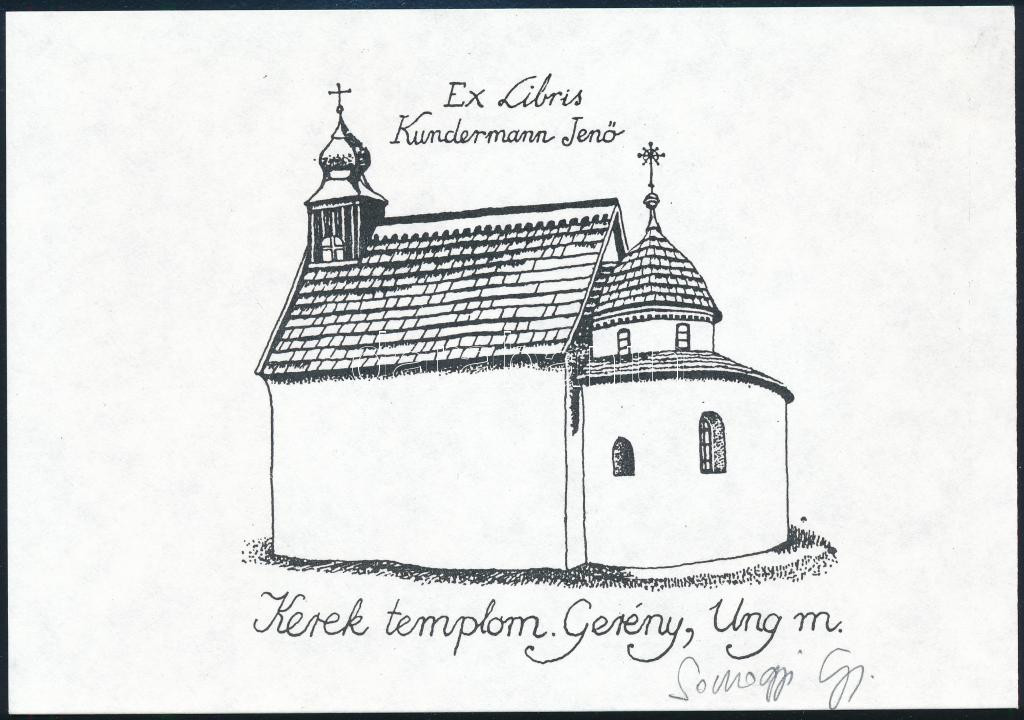 Ex Libris
Kundermann Jenö
Kerek templom. Gerény, Ung m.
Somogyi Gy.